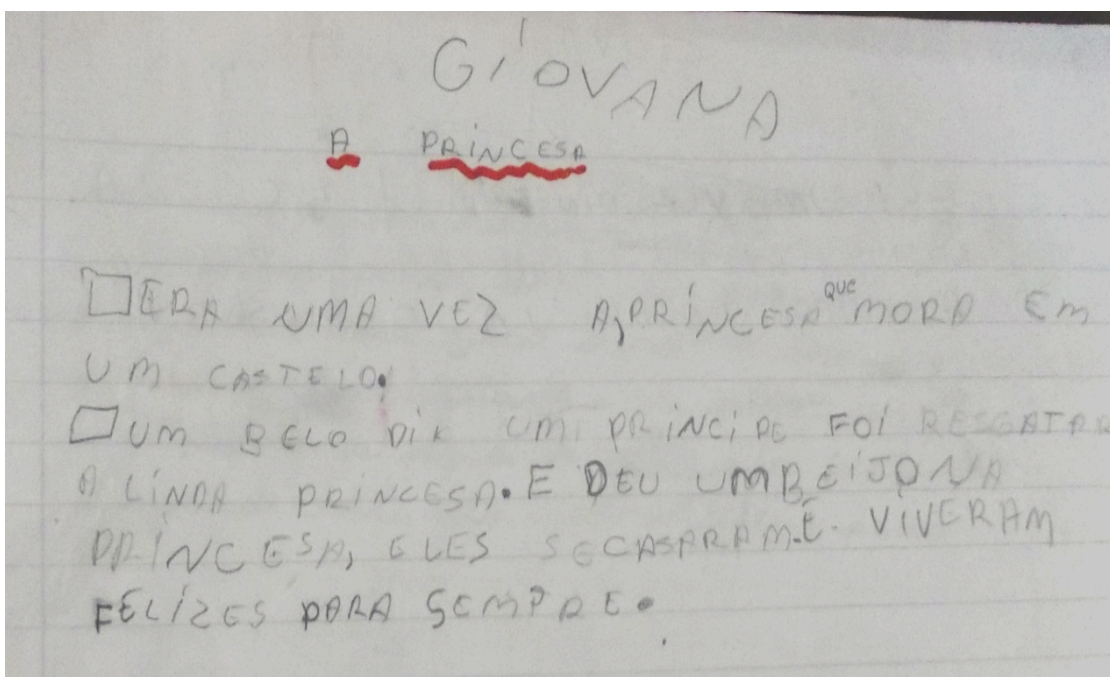 GIOVANA
A PRINCESA
ERA UMA VEZ A, PRINCESA QUE MORA EM
UM CASTELO.
UM BELO DIA UM PRINCIPE FOI RESGATAR
A LINDA PRINCESA. E DEU UM BEIJO NA
PRINCESA, ELES SE CASARAM. E VIVERAM
FELIZES PARA SEMPRE.